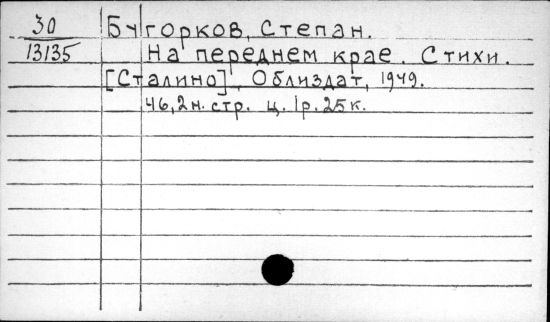 30
13135
Бугорков, Степан.
На переднем крае. Стихи.
[Сталино], Облиздат, 1949.
46,2н. стр. ц. 1р. 25к.